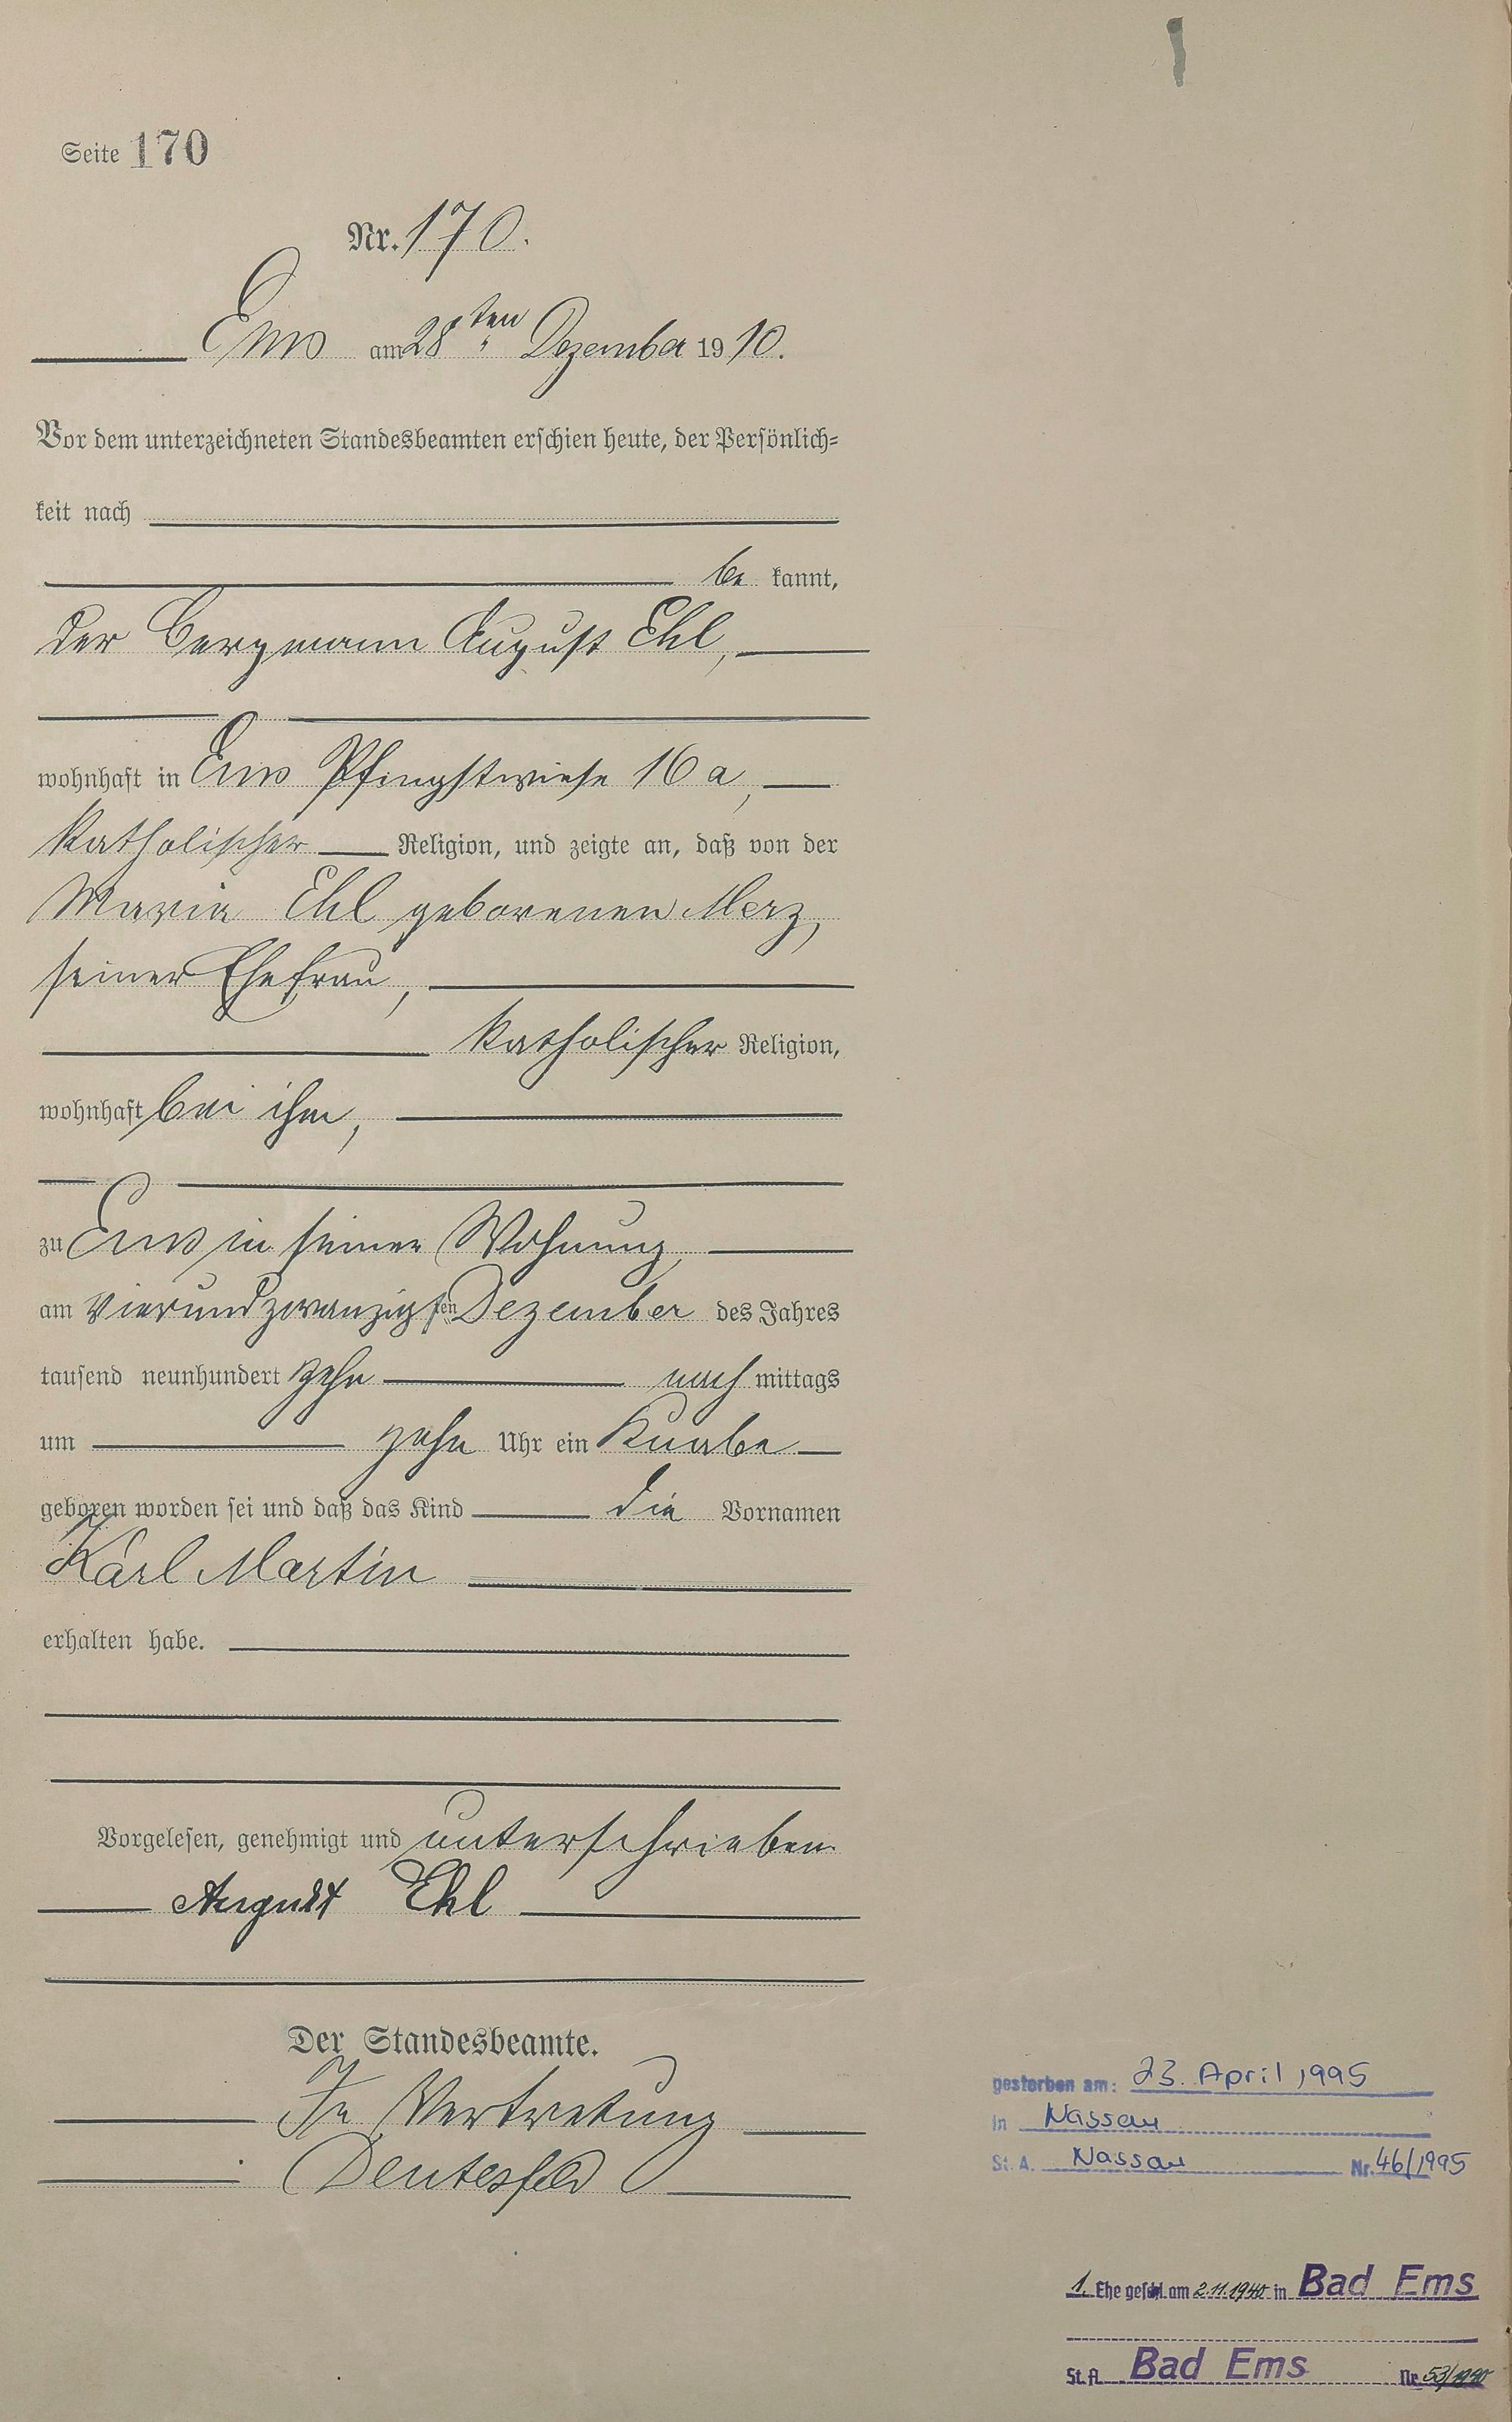 Seite 170
Nr. 170.
Ems am 28ten Dezember 1910.
Vor dem unterzeichneten Standesbeamten erschien heute, der Persönlich-
keit nach
be kannt,
der Bergmann August Ehl,
wohnhaft in Ems Pfingstwiese 16 a,
katholischer Religion, und zeigte an, daß von der
Maria Ehl geborenen Merz,
seiner Ehefrau,
katholischer Religion,
wohnhaft bei ihm,
zu Ems in seiner Wohnung,
am vierundzwanzigsten Dezember des Jahres
tausend neunhundert zehn nach mittags
um zehn Uhr ein Knabe
geboren worden sei und daß das Kind die Vornamen
Karl Martin
erhalten habe.
Vorgelesen, genehmigt und unterschrieben
August Ehl
Der Standesbeamte.
In Vertretung
Deutesfeld
gestorben am: 23. April 1995
in Nassau
St. A. Nassau Nr. 46/1995
1. Ehe geschl. am 2.11.1940 in Bad Ems
St. A. Bad Ems Nr. 53/1940